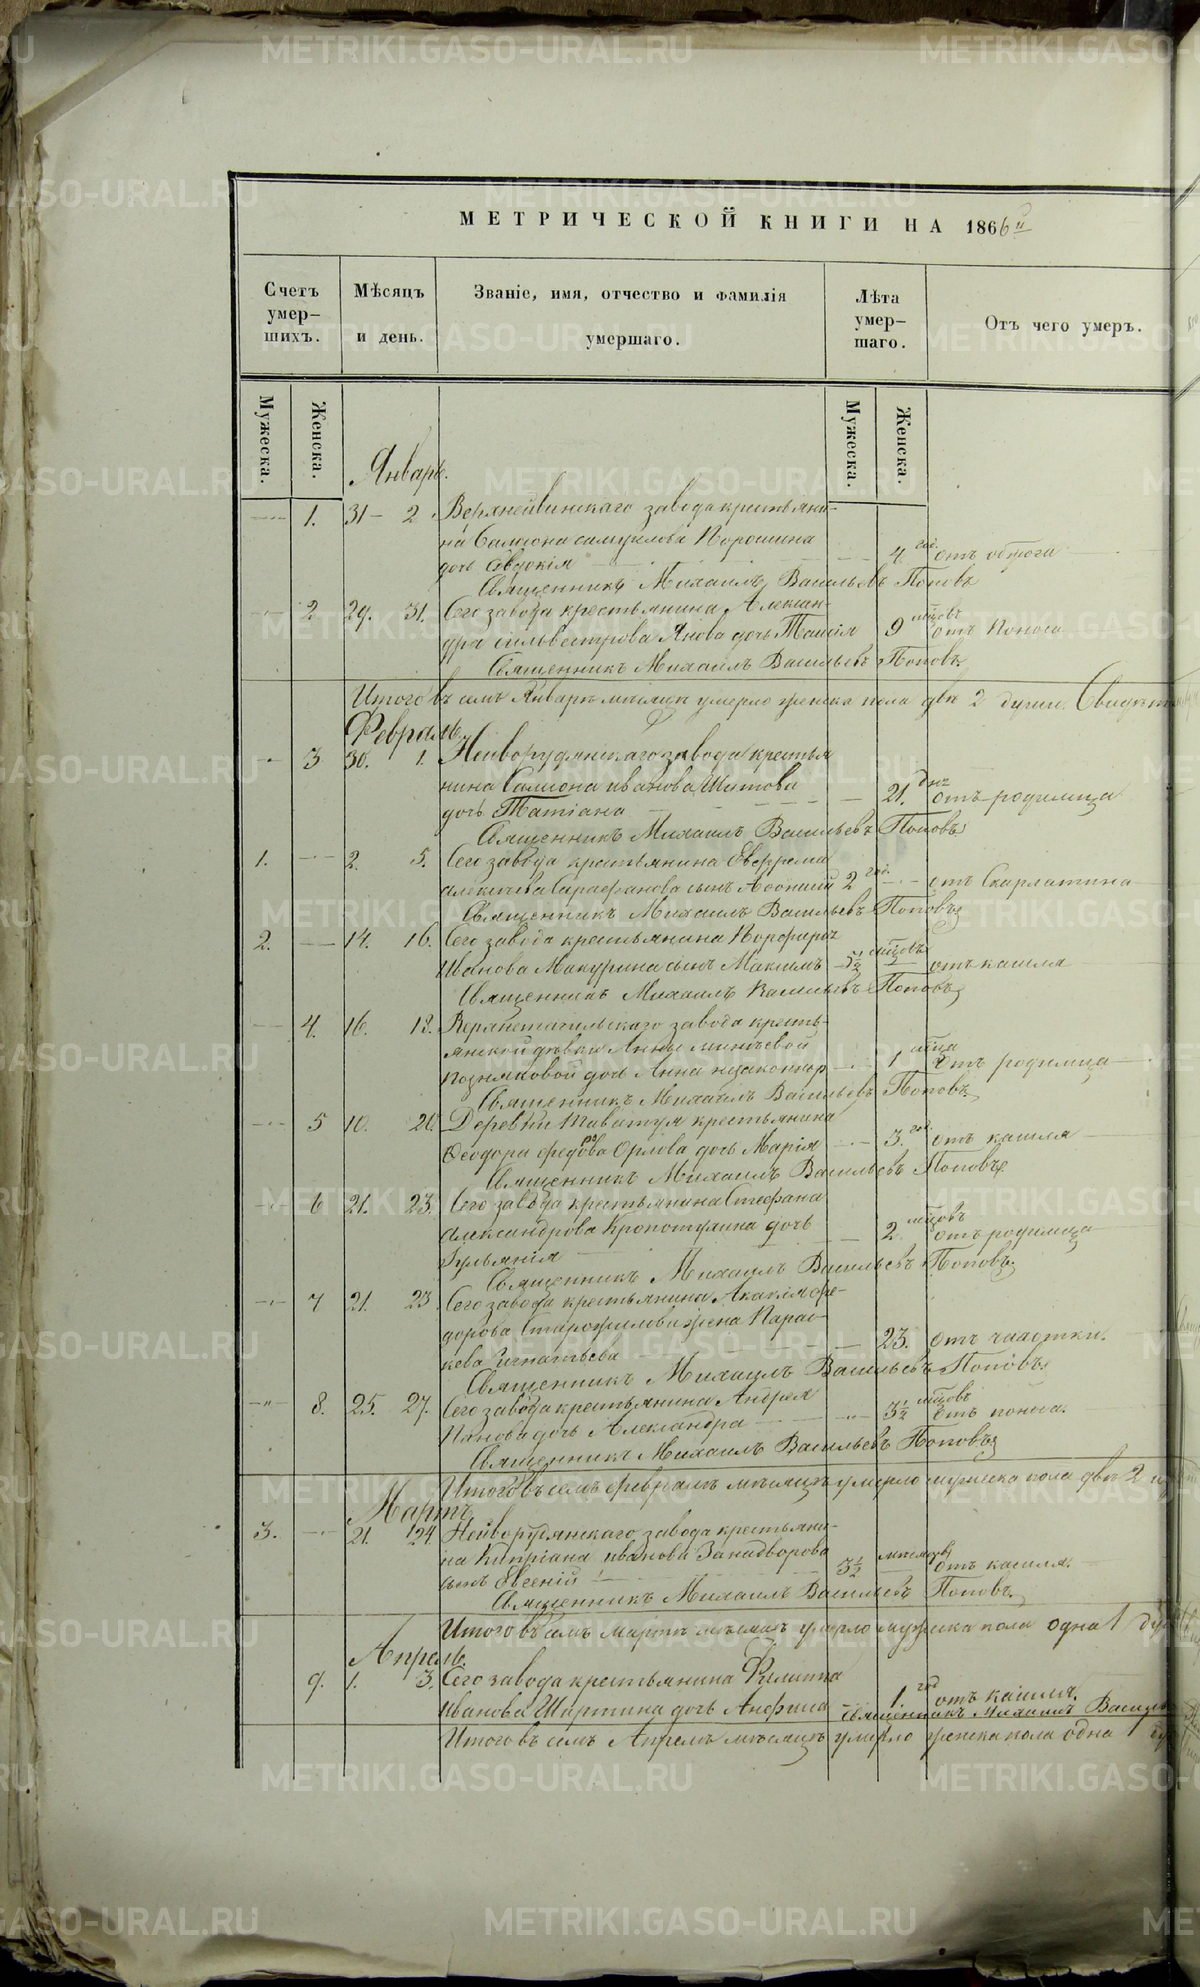 МЕТРИЧЕСКОЙ КНИГИ НА 1866й
Счетъ умер-шихъ.
Мѣсяцъ и день.
Званіе, имя, отчество и фамилія умершаго.
Лѣта умер-шаго.
Отъ чего умеръ.
Мужеска.
Женска.
Мужеска.
Женска.
Январь.
1. 31 - 2. Верхнейвинскаго завода крестьяни-
на Самсона Самуилова Порошина
дочь Евдокія 4 год. отъ
Священникъ Михаилъ Васильевъ Поповъ
2 29. 31. Сего завода крестьянина Алексан-
дра Сильвестрова Янова дочь Таисія 9 мѣцовъ отъ поноса
Священникъ Михаилъ Васильевъ Поповъ
Итого въ семъ Январѣ мѣсяцѣ умерло женска пола двѣ 2 души.
Февраль.
3 30. 1. Нейворудянскаго завода крестья
нина Самсона Иванова Шитова
дочь Татіана 21. дня отъ родимца
Священникъ Михаилъ Васильевъ Поповъ
1. 2. 5. Сего завода крестьянина Евфрема
Алексѣева Сарафанова сынъ 2 год. отъ Скарлатина
Священникъ Михаилъ Васильевъ Поповъ
2. 14. 16. Сего завода крестьянина Порфирія
Иванова Макурина сынъ Максимъ 5½ мѣцовъ отъ кашля
Священникъ Михаилъ Васильевъ Поповъ
4. 16. 18. Верхнетагильскаго завода кресть-
янской дѣвки Анны
Поздняковой дочь Анна незаконнор 1 мѣца отъ родимца
Священникъ Михаилъ Васильевъ Поповъ
5 10. 20. Деревни Таватуя крестьянина
Феодора Федорова Орлова дочь Марія 3. год. отъ кашля
Священникъ Михаилъ Васильевъ Поповъ
6 21. 23. Сего завода крестьянина Стефана
Александрова Кропотухина дочь
Іульянія 2 мѣцовъ отъ родимца
Священникъ Михаилъ Васильевъ Поповъ.
7 21. 23. Сего завода крестьянина Акакія Фе-
дорова жена Парас-
кева Игнатьева 23. отъ чахотки.
Священникъ Михаилъ Васильевъ Поповъ
8. 25. 27. Сего завода крестьянина Андрея
Панова дочь Александра 3½ мѣцовъ отъ поноса.
Священникъ Михаилъ Васильевъ Поповъ
Итого въ семъ февралѣ мѣсяцѣ умерло мужеска пола двѣ 2 и
Мартъ.
3. 21. 24. Нейворудянскаго завода крестьяни-
на Кипріана Иванова Занадворова
сынъ Евгеній 3½ мѣсяцовъ отъ кашля.
Священникъ Михаилъ Васильевъ Поповъ.
Итого въ семъ мартѣ мѣсяцѣ умерло мужска пола одна 1
Апрель.
9. 1. 3. Сего завода крестьянина Филиппа
Иванова Ширтина дочь Анфиса 1. год отъ кашля.
Священникъ Михаилъ
Итого въ семъ Апрелѣ мѣсяцѣ умерло женска пола одна 1
METRIKI.GASO-URAL.RU